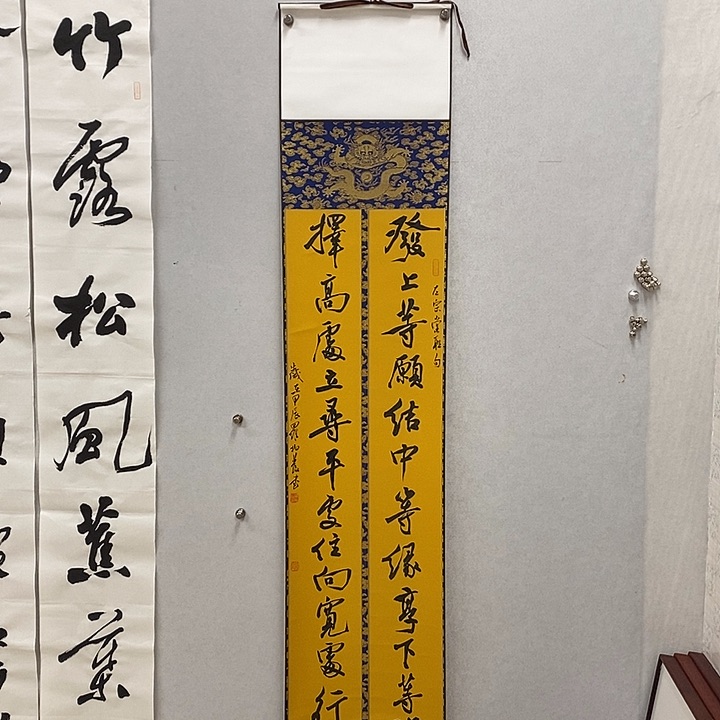 發上等願結中等緣享下等
左宗棠聯句
擇高處立尋平處住向寬處行
歲在甲辰
竹露松風蕉葉